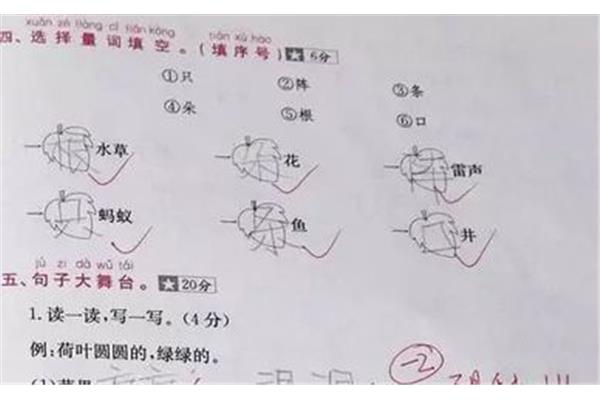 xuǎn zé liàng cí tián kòng tián xù hào
四、选择量词填空。(填序号) ★ 6分
①只 ②阵 ③条
④朵 ⑤根 ⑥口
一根水草 一朵花 一阵雷声
一只蚂蚁 一条鱼 一口井
jù zi dà wǔ tái
五、句子大舞台。 ★ 20分
1.读一读,写一写。(4分)
例:荷叶圆圆的,绿绿的。
-2
(1)苹果